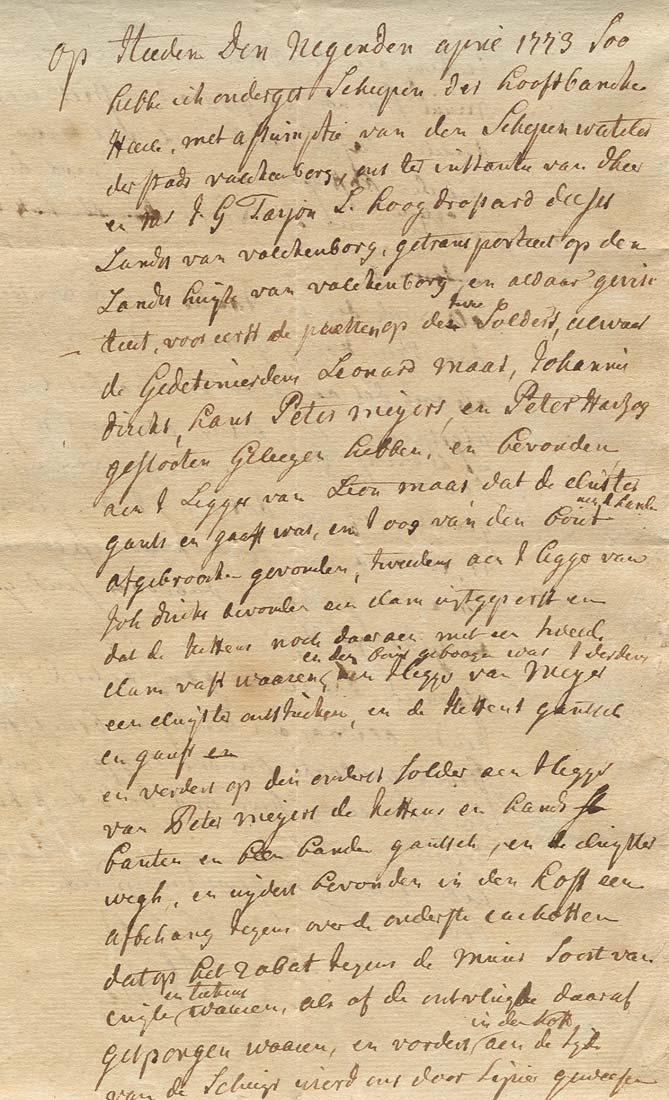 op Heeden Den Negenden april 1773 Soo
hebbe ich onderges Schepen der hooftbancke
met assumptie van den Schepen
der stadt valckenborg, ons ter instantie van dheer
en J G Farjon L. hoogdrossard deeses
Landts van valckenborg, getransporteert op den
Landts huijse van valckenborg en aldaar gevisi
teert, vooreerst de plaetten op den twee Solders, alwaer
de Gedetineerdens Leonard maas, Johannes
dircks, hans Peter meijers, en Peter Hartzog
geslooten Geleegen hebben, en bevonden
aen t Legger van Leon maas, dat de cluster
gants en gaeff was, en t oog van den bout aen d hande
afgebroocken gevonden, tweedens aen t legge van
Joh dircks bevonden een clam uytgeperst en
dat de kettens noch daeraen met een tweede
clam vast waaren, en den bout geboogen was t derdens
aen t legge van Meijer
een cluyster ontstucken, en de kettens gantsch
en gaeff en
en verders op den ondersten solder aen t legge
van Peter meijers de kettens en hands
banden en been banden gantsch, en de cluyster
wegh, en wyders bevonden in den hoff een
afhang tegens over de onderste cachotten
dat op het rabat tegens de muur Soort van
en teekens waaren, als of de ontvlugte daeraf
gesprongen waaren, en vorders in den hoff aen de syde
van de Scheijr wierd ons door Sipier geweesen